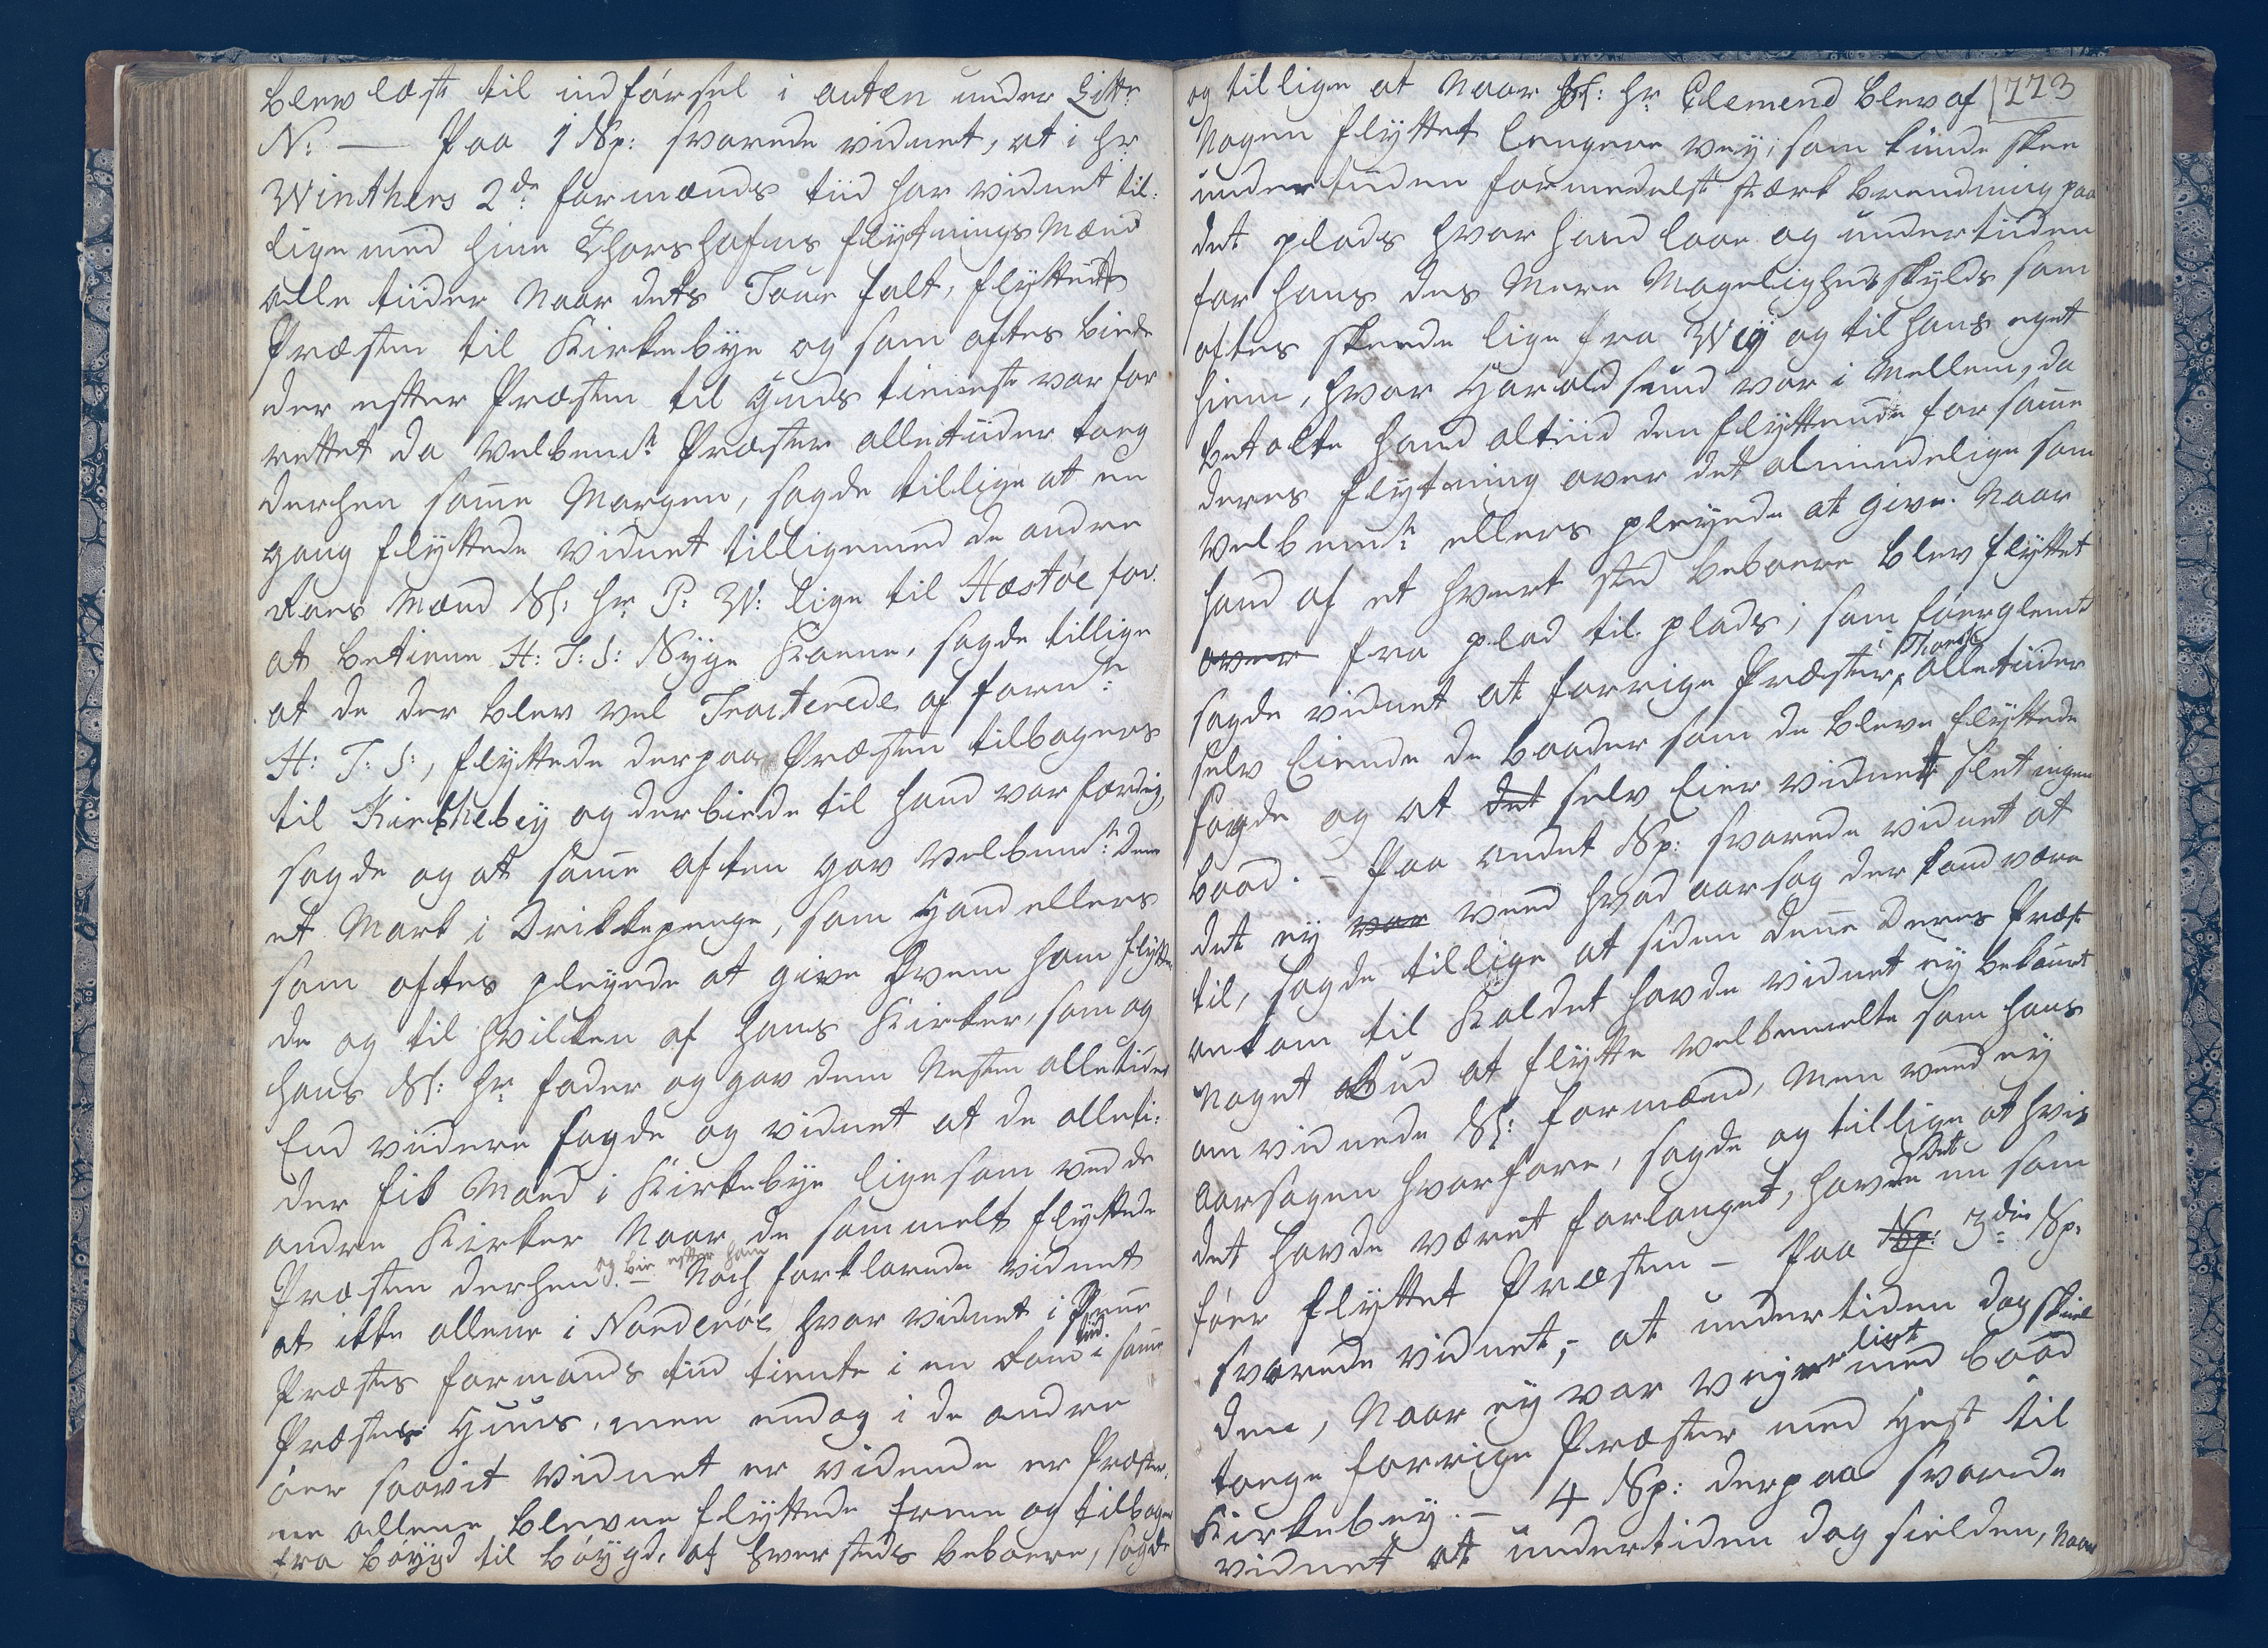 blev læst til indførsel i acten under Litr
N: — Paa 1 Sp: svarede vidnet, at i Hr
Winthers 2de formænds tiid har vidnet til-
lige med hine Thorshafns flytnings Mænd
alle tiider Naar dets Tour falt, flyttede
Præsten til Kirkebÿe og som oftes biede
der efter Præsten til Guds tieneste var for
rettet da velbemte Præster alletiider toeg
derhen same Morgen, sagde tillige at en
gang flyttede vidnet tilligemed de andre
Roers Mænd Sl: Hr P: W: lige til Hæstøe for
at betiene H: J: S: Sÿge Kone, sagde tillige
at de der blev vel Tracterede af fornte
H: J: S:, flyttede derpaa Præsten tilbagers
til Kirkebeÿ og der biede til hand var færdig,
sagde og at same aften gav velbemte dem
et Mark i Drikkepenge, som Hand ellers
som oftes pleÿede at give hvem ham flytte
de og til hvilken af hans Kirker, som og
hans Sl: Hr fader og gav dem Nesten alletider
End viidere sagde og vidnet at de alleti-
der fik Mad i Kirkebÿe ligesom ved de
andre Kirker Naar de sammelt flyttede
Præsten derhen og bie efter ham. — Noch forklarede vidnet
at ikke allene i Norderøe hvor vidnet i Denne
Præstes formands tiid tiente i en tiid i same
Præstes Huus, men endog i de andre
øer saavit vidnet er vidende er Præster-
ne allene blevne flyttede frem og tilbage
fra bøÿgd til bøÿgd, af hver steds beboere, sagde
og tillige at Naar Sl: Hr Clemend blev af 773
Nogen flyttet længere veÿ, som kunde skee
undertiiden formedelst stærk brendning paa
det plads hvor hand laae og undertiiden
for hans des Mere Mageligheds skÿlds som
oftes skeede lige fra Weÿ og til hans eget
hiem, hvor Haraldsund var i Mellem, da
betalte hand altiid den flyttende for same
deres flÿtning over det almindelige som
velbemte ellers pleÿede at give. Naar
hand af et hvert sted beboere blev flyttet
over fra plad til plads; som føerglemt
sagde vidnet at forrige Præster i Thorsh: alletiider
selv Eiende de baader som de bleve flyttede
sagde og at det selv Eier vidnet slet ingen
baad. — Paa andet Sp: svarede vidnet at
det eÿ var veed hvad aarsag der kand være
til, sagde tillige at siden dene deres Præst
ankom til Kaldet havde vidnet eÿ bekomet
Noget Bud at flÿtte velbemelte som hans
omvidnede Sl: formænd, Men veed eÿ
aarsagen hvorfore, sagde og tillige at hvis
det havde været forlanget, havde Det nu som
føer flyttet Præsten — Paa Sp: 3die Sp:
svarede vidnet, at undertiden dog skiel
den, Naar eÿ var veÿerligt med baad
toege forrige Præster med Hest til
Kirkebeÿ. — 4 Sp: derpaa svarede
vidnet at undertiden dog sielden, Naar